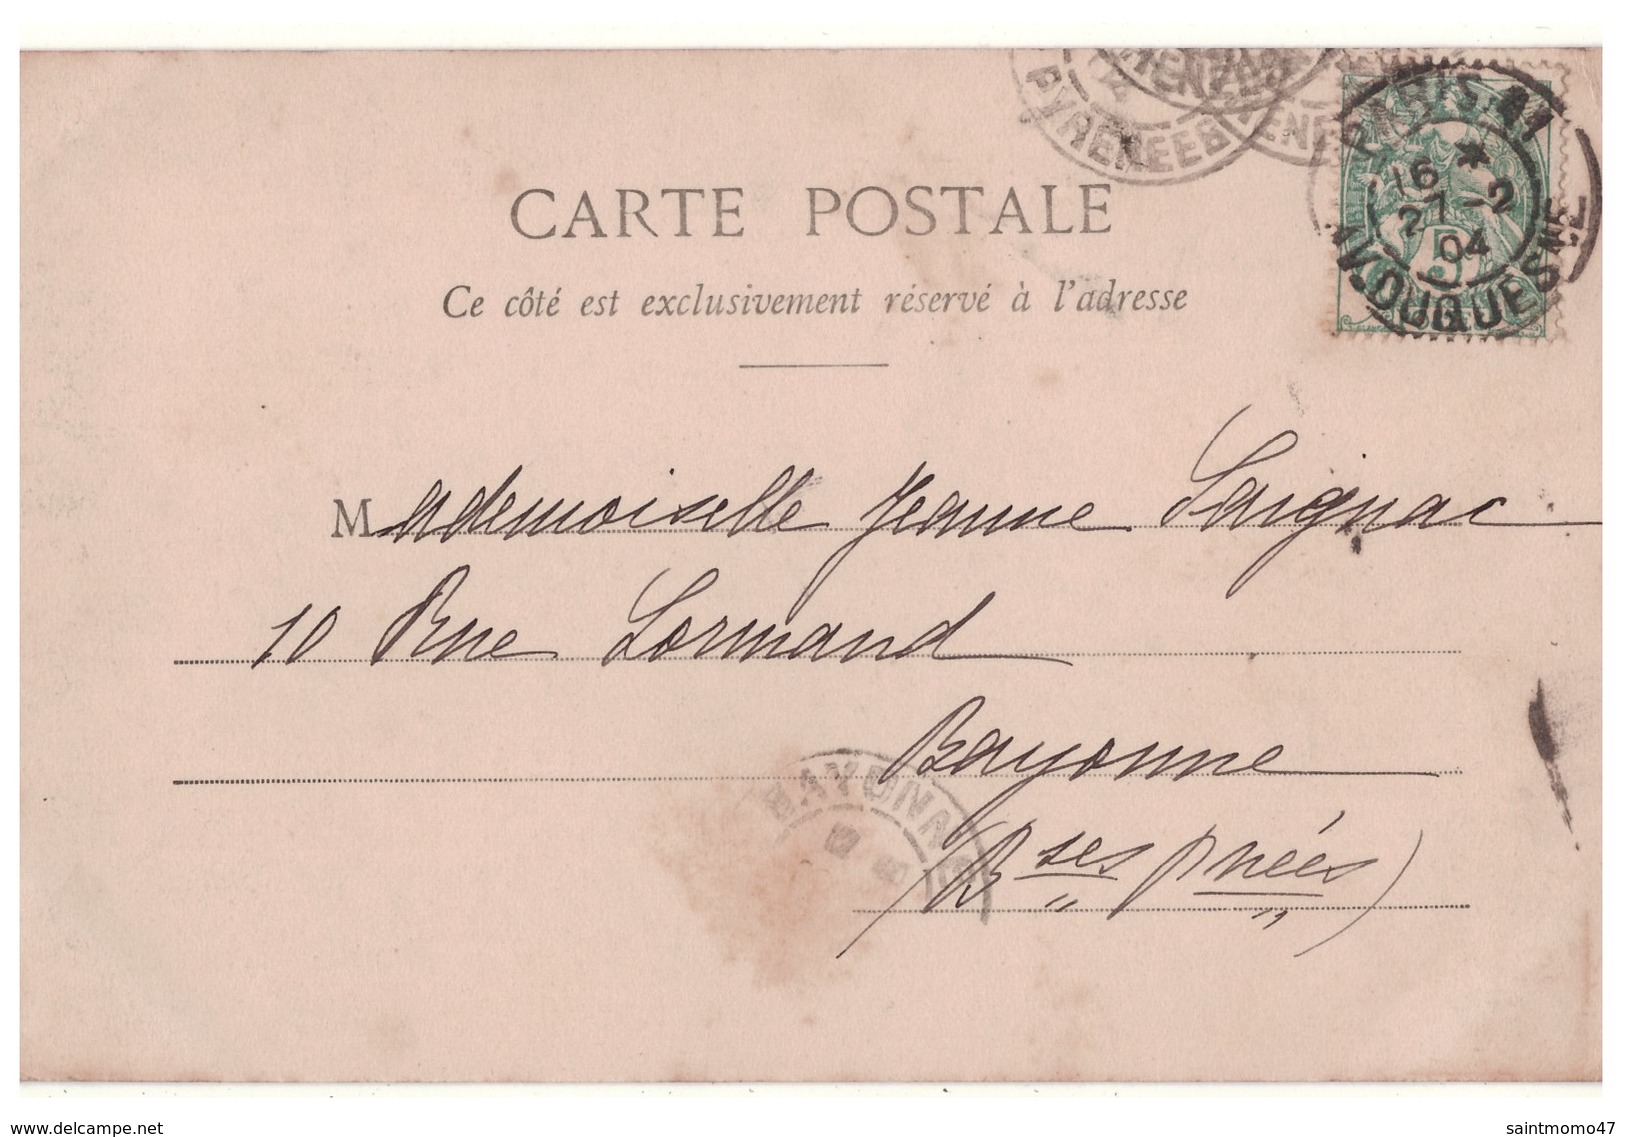 CARTE POSTALE
Ce côté est exclusivement réservé à l'adresse
PARIS.41
16 *
27 -2
04
AV. DUQUESNE
5
PYRENEES
Mademoiselle Jeanne Laignac
10 Rue Lormand
Bayonne
BAYONNE
(Bses Pnées)
www.delcampe.net
saintmomo47